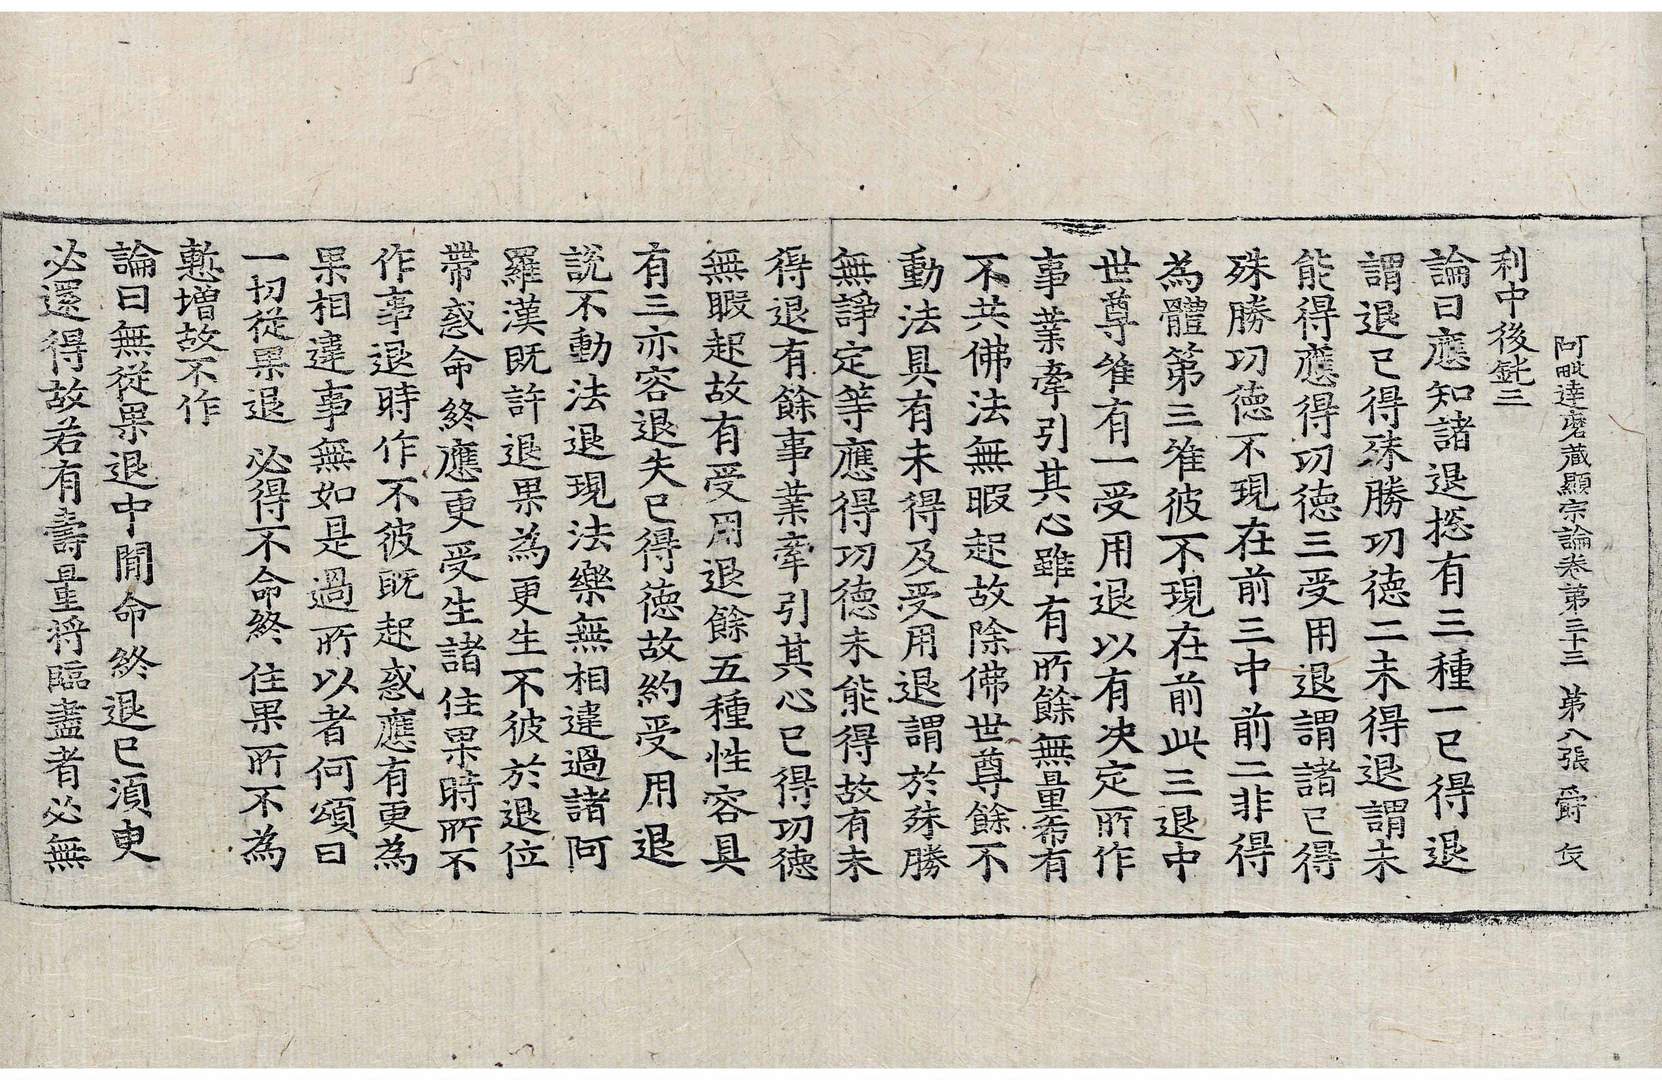 阿毗達磨藏顯宗論卷第三十三　第八張　爵
利中後鈍三
論曰應知諸退揔有三種一已得退
謂退已得殊勝功德二未得退謂未
能得應得功德三受用退謂諸已得
殊勝功德不現在前三中前二非得
為體第三唯彼不現在前此三退中
世尊唯有一受用退以有决定所作
事業牽引其心雖有所餘無量希有
不共佛法無暇起故除佛世尊餘不
動法具有未得及受用退謂於殊勝
無諍定等應得功德未能得故有未
得退有餘事業牽引其心已得功德
無暇起故有受用退餘五種性容具
有三亦容退失已得德故約受用退
說不動法退現法樂無相違過諸阿
羅漢既許退果為更生不彼於退位
帶惑命終應更受生諸住果時所不
作事退時作不彼既起惑應有更為
果相違事無如是過所以者何頌曰
一切從果退　必得不命終　住果所不為
慙增故不作
論曰無從果退中閒命終退已須臾
必還得故若有壽量將臨盡者必無